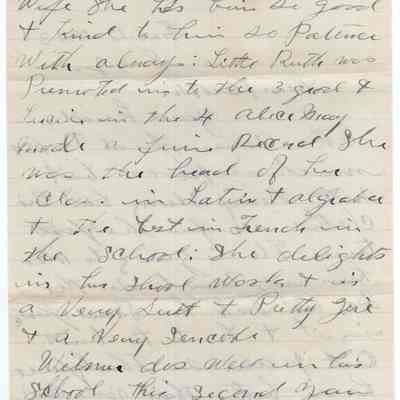 Wife She has bin so good
& Kind to him so Patence
With always: Little Ruth was
Promoted in to the 3 grad &
in the 4 Alice May
made a fine Record She
was the head of her
Class in Latin & algabra
& the best in French in
the School: She delights
in his Shool Works & is
a Very & Pretty Girl
& a Very
Wilmer dos Well in his
School this Second Year